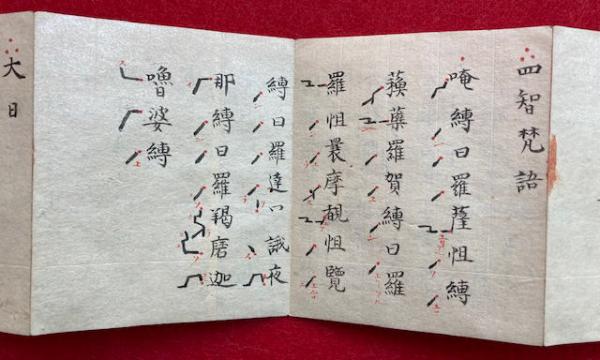 四智梵語
唵縛日羅薩怛縛
蘗羅賀縛日羅
羅怛曩摩覩怛覽
縛日羅達口誐夜
那縛日羅羯磨迦
嚕婆縛
大日